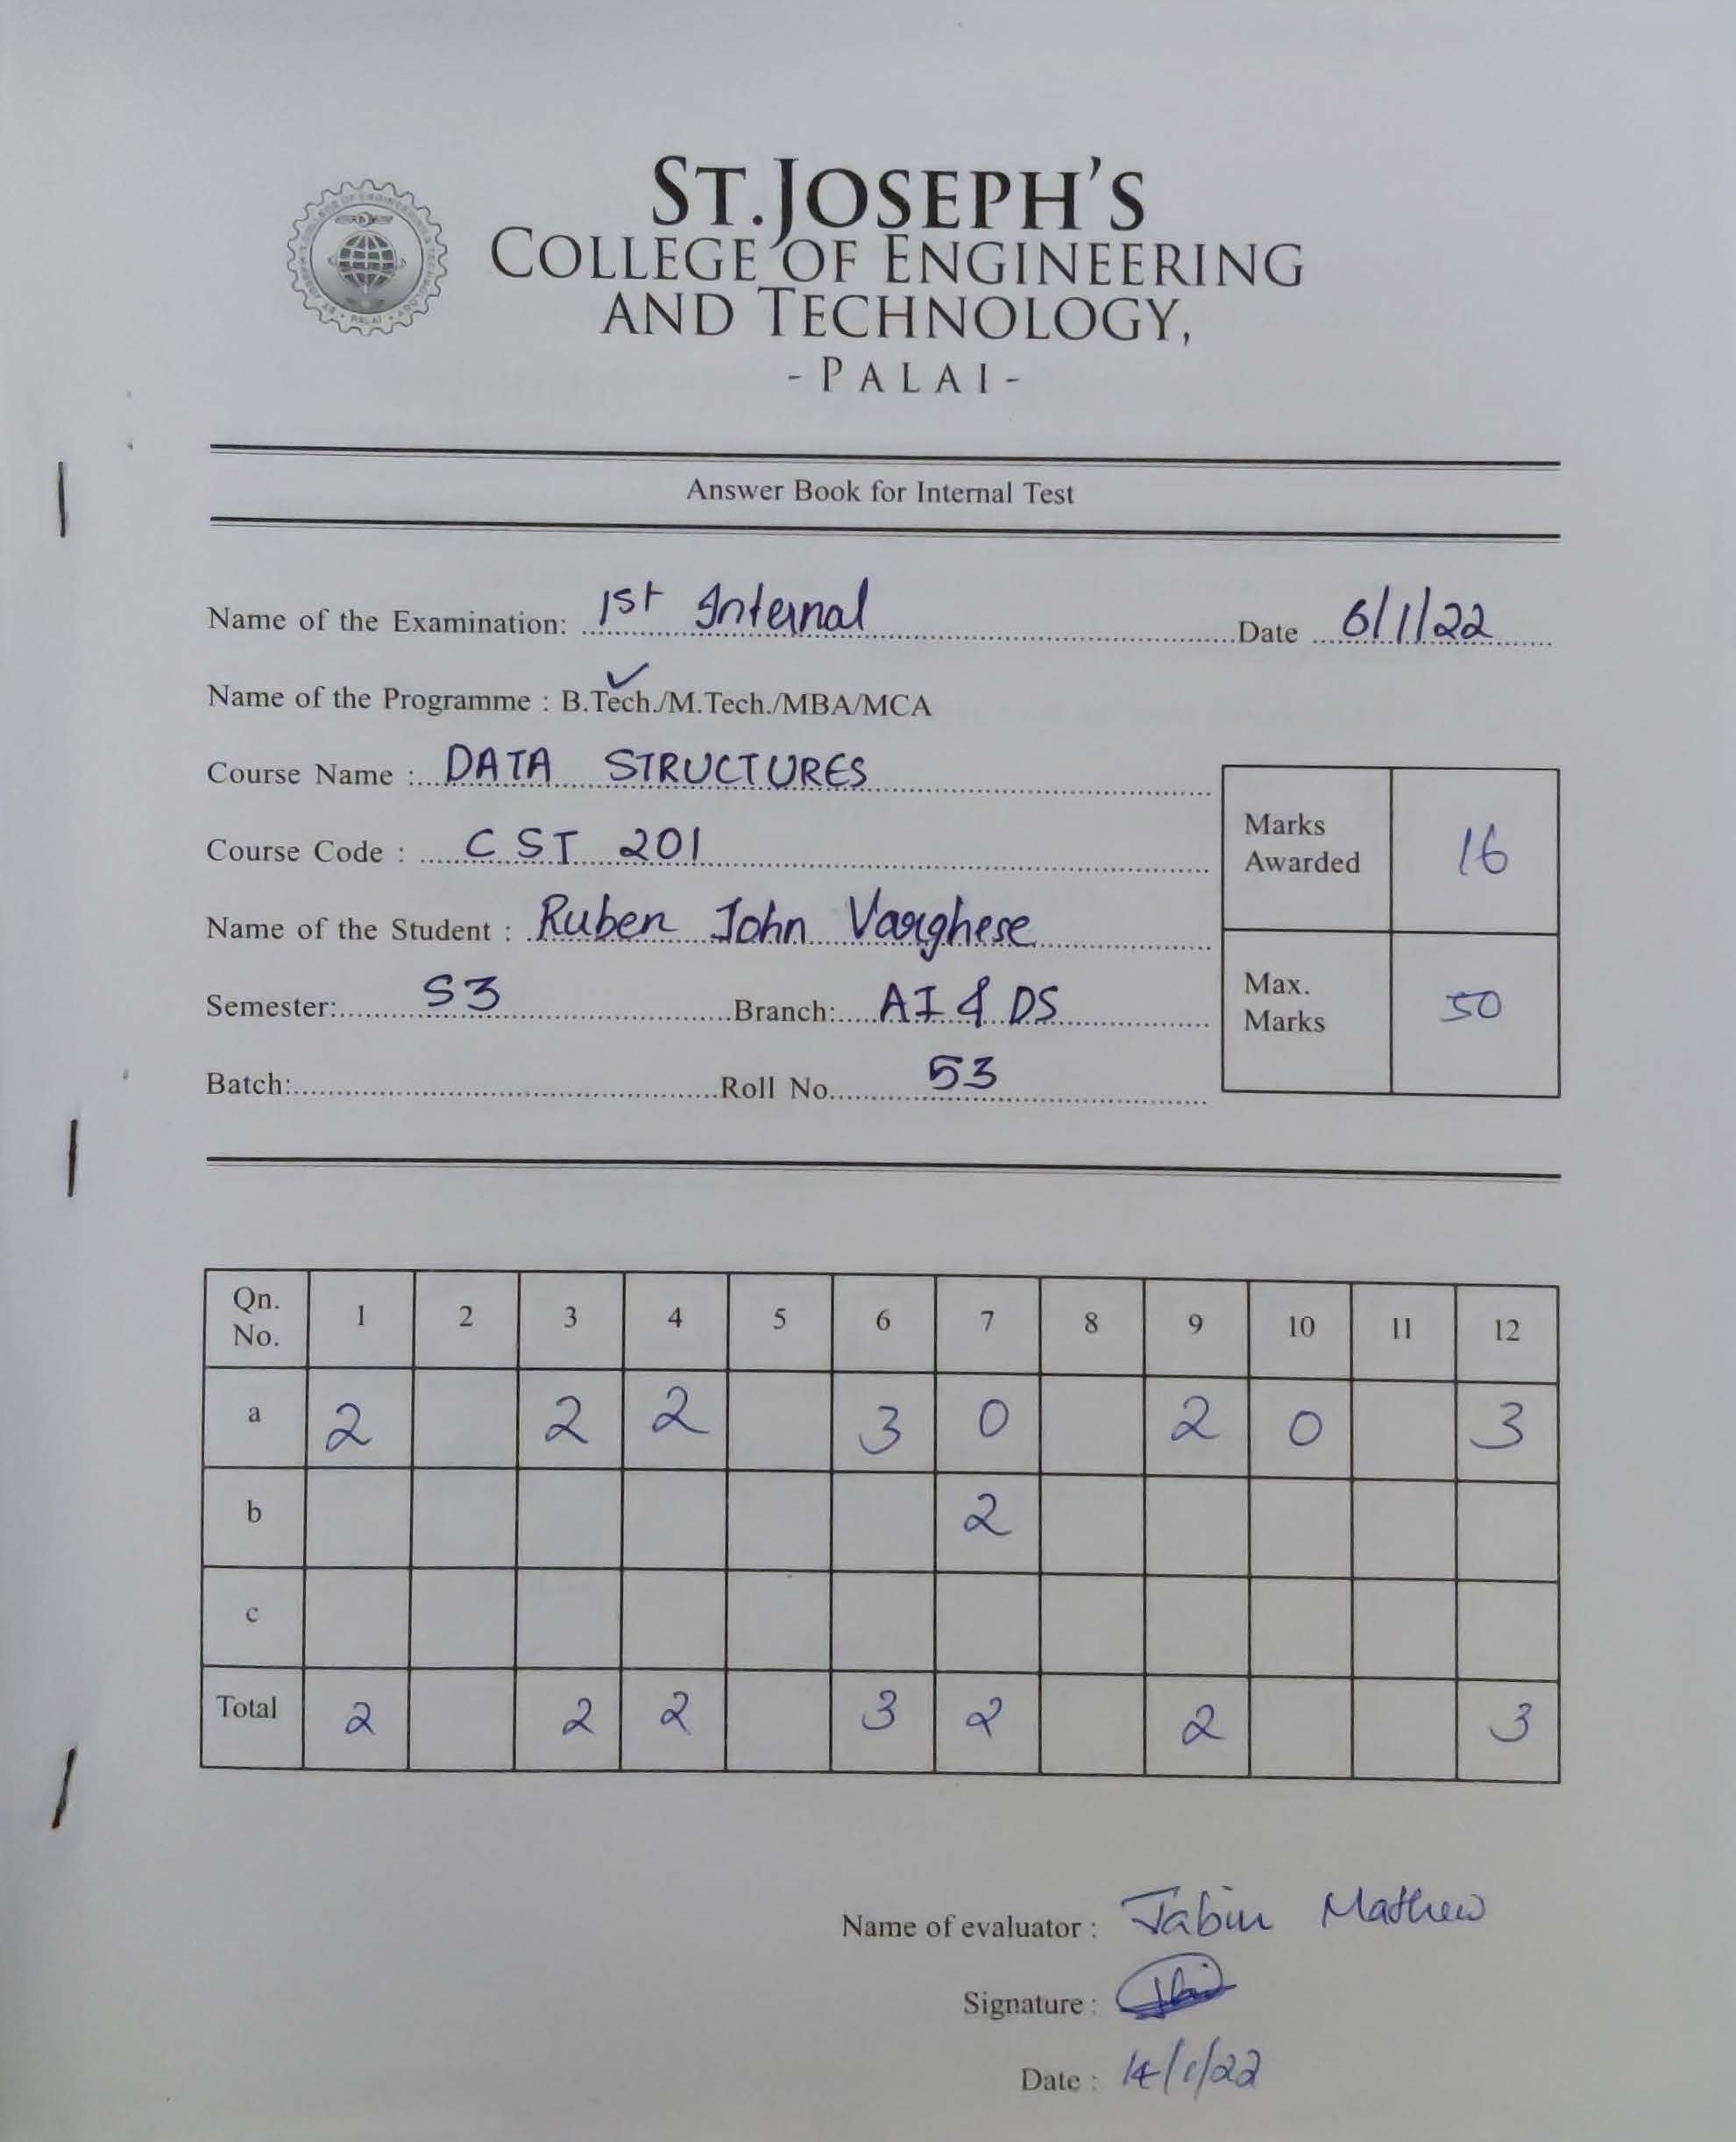 ST.JOSEPH'S
COLLEGE OF ENGINEERING
AND TECHNOLOGY,
- PALAI -
Answer Book for Internal Test
Name of the Examination: 1st Internal Date 6/1/22
Name of the Programme : B.Tech./M.Tech./MBA/MCA
Course Name : DATA STRUCTURES
Course Code : CST 201
Name of the Student : Ruben John Varghese
Semester: S3 Branch: AI & DS
Batch: Roll No. 53
Marks Awarded 16
Max. Marks 50
Qn. No. 1 2 3 4 5 6 7 8 9 10 11 12
a 2 2 2 3 0 2 0 3
b 2
c
Total 2 2 2 3 2 2 3
Name of evaluator : Jabin Mathew
Signature :
Date : 14/1/22